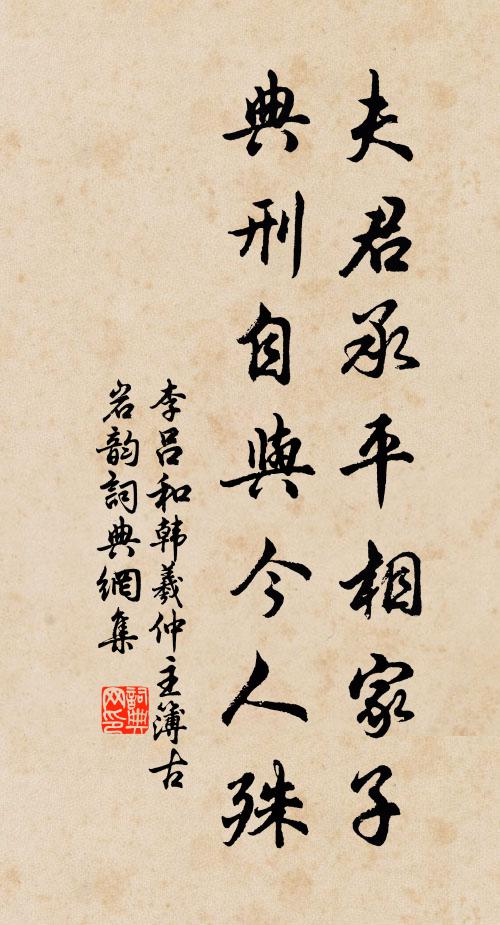 夫君承平相家子
典刑自與今人殊
李吕和韩羲仲主簿古
岩韵詞典網集
詞典网印